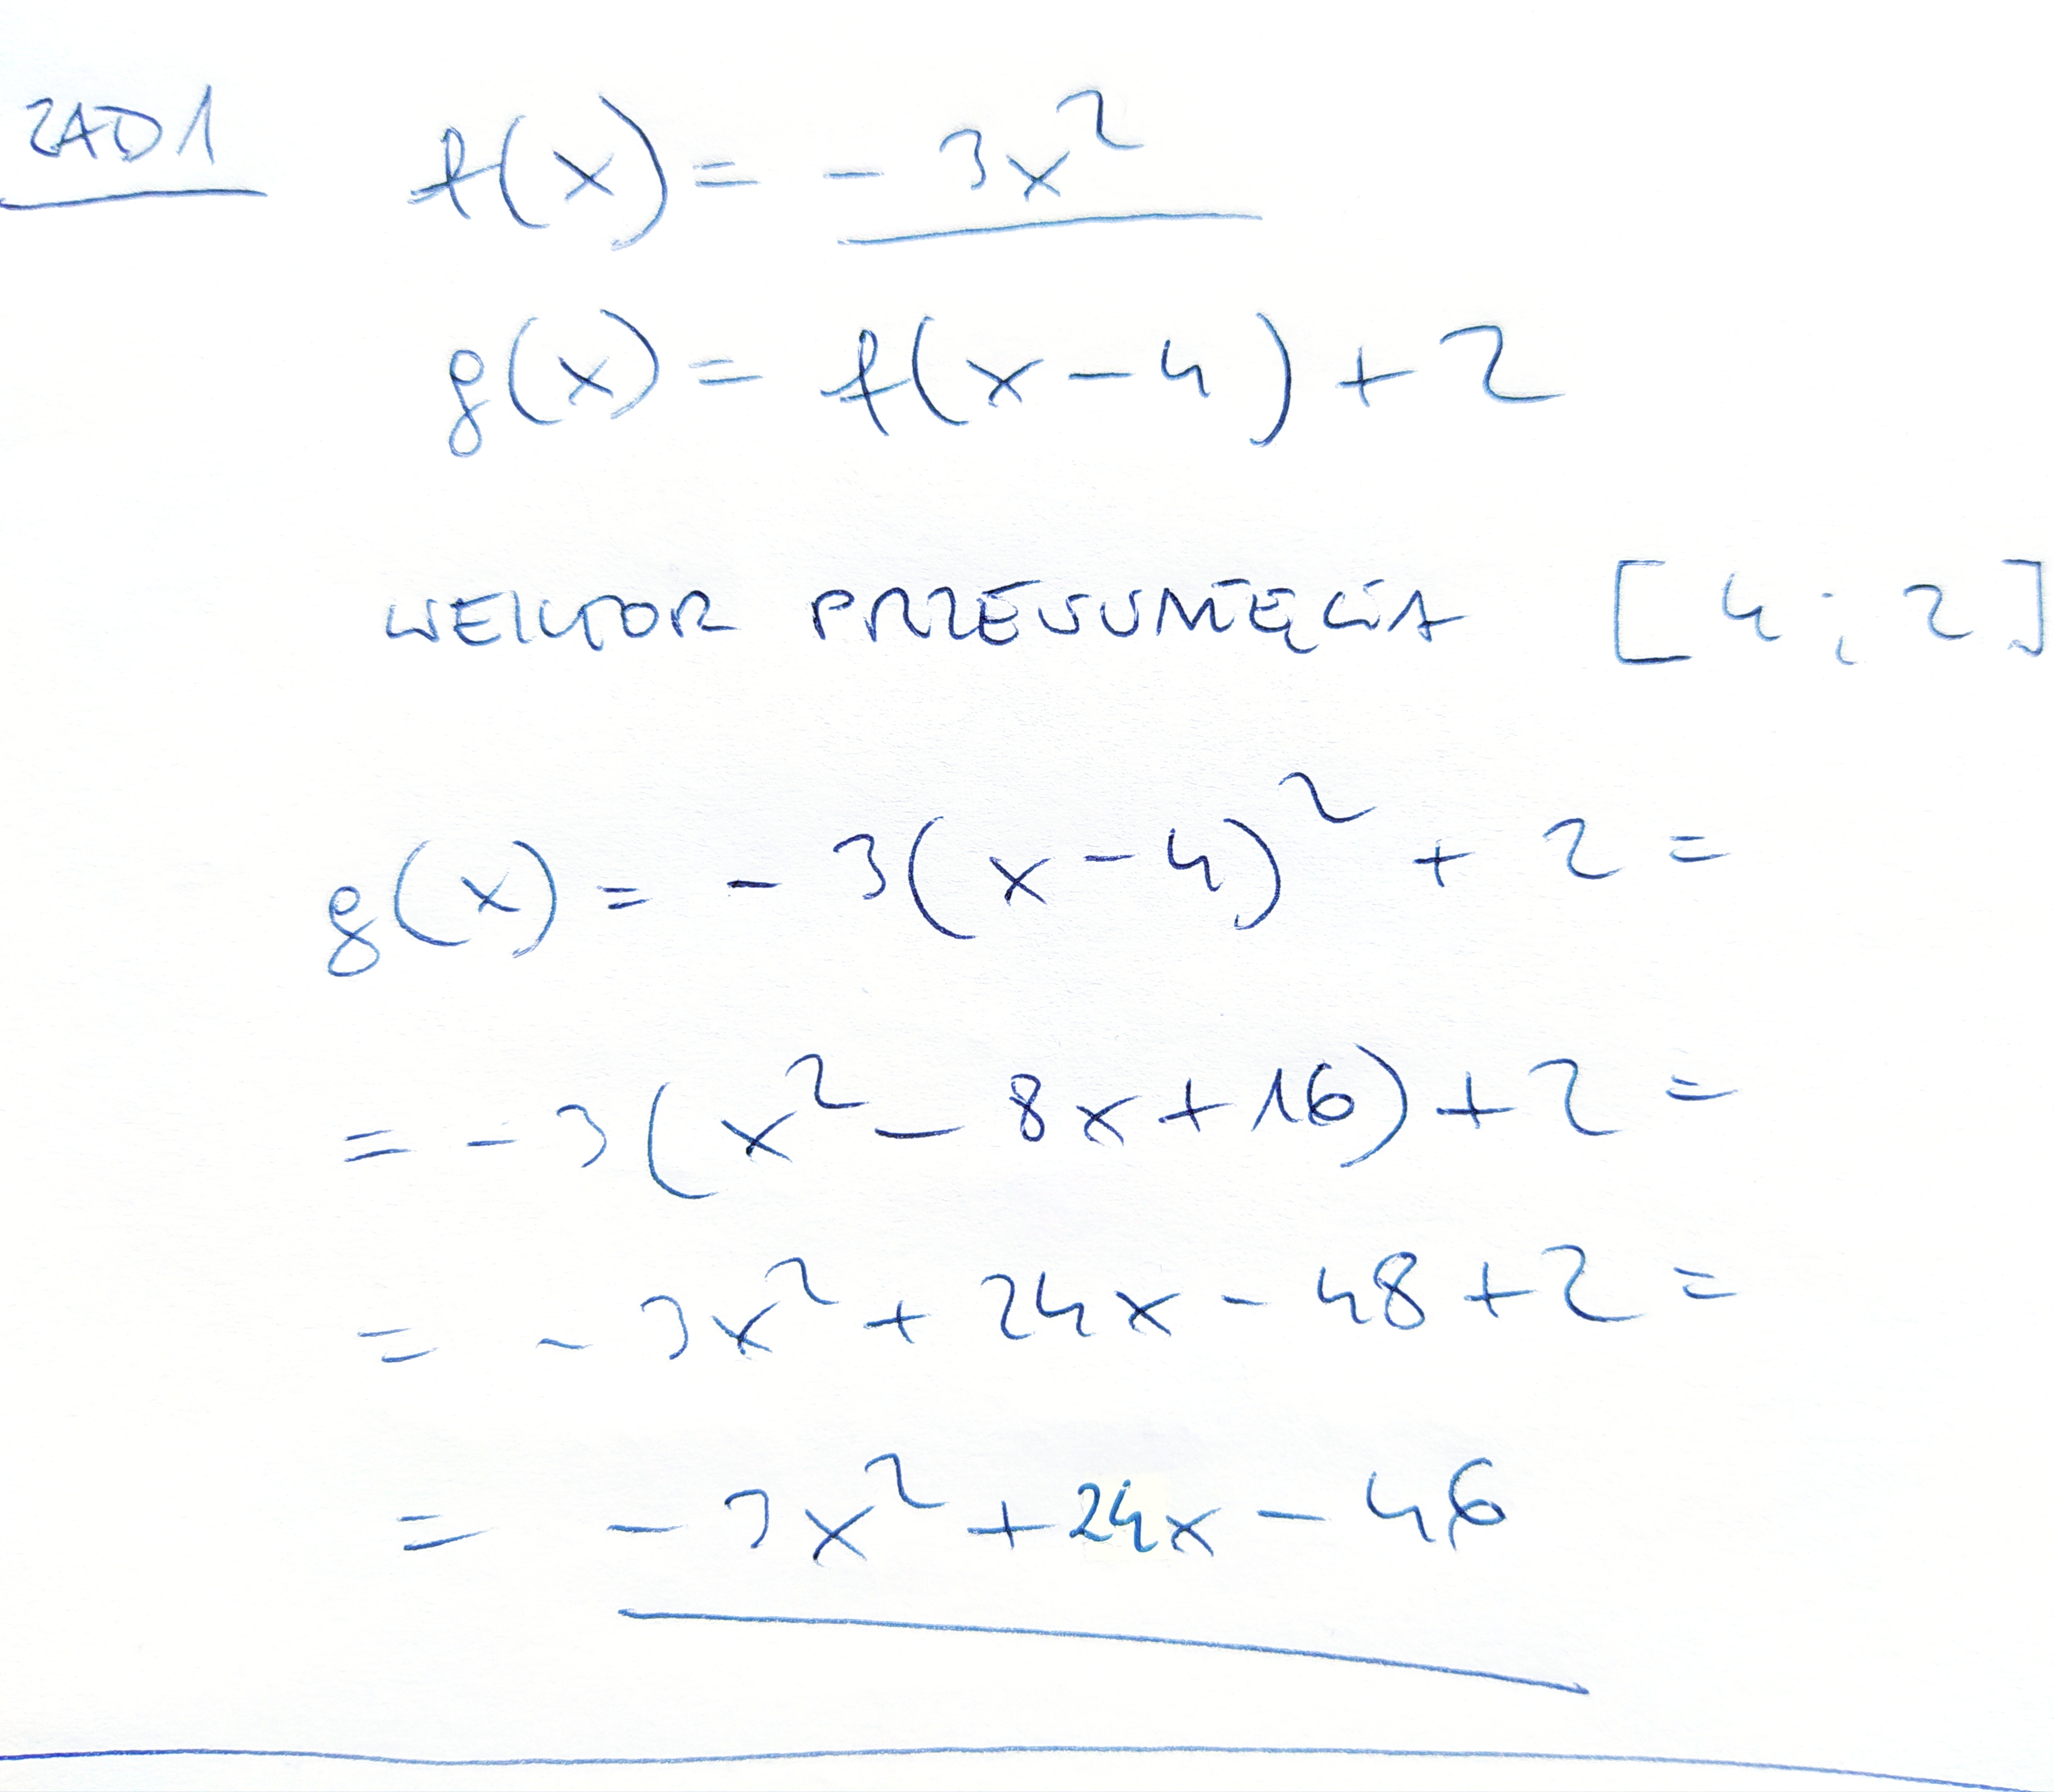 ZAD1 f(x) = - 3x²
g(x) = f(x-4) + 2
WEKTOR PRZESUNIĘCIA [4; 2]
g(x) = - 3(x-4)² + 2 =
= -3(x² - 8x + 16) + 2 =
= - 3x² + 24x - 48 + 2 =
= - 3x² + 24x - 46